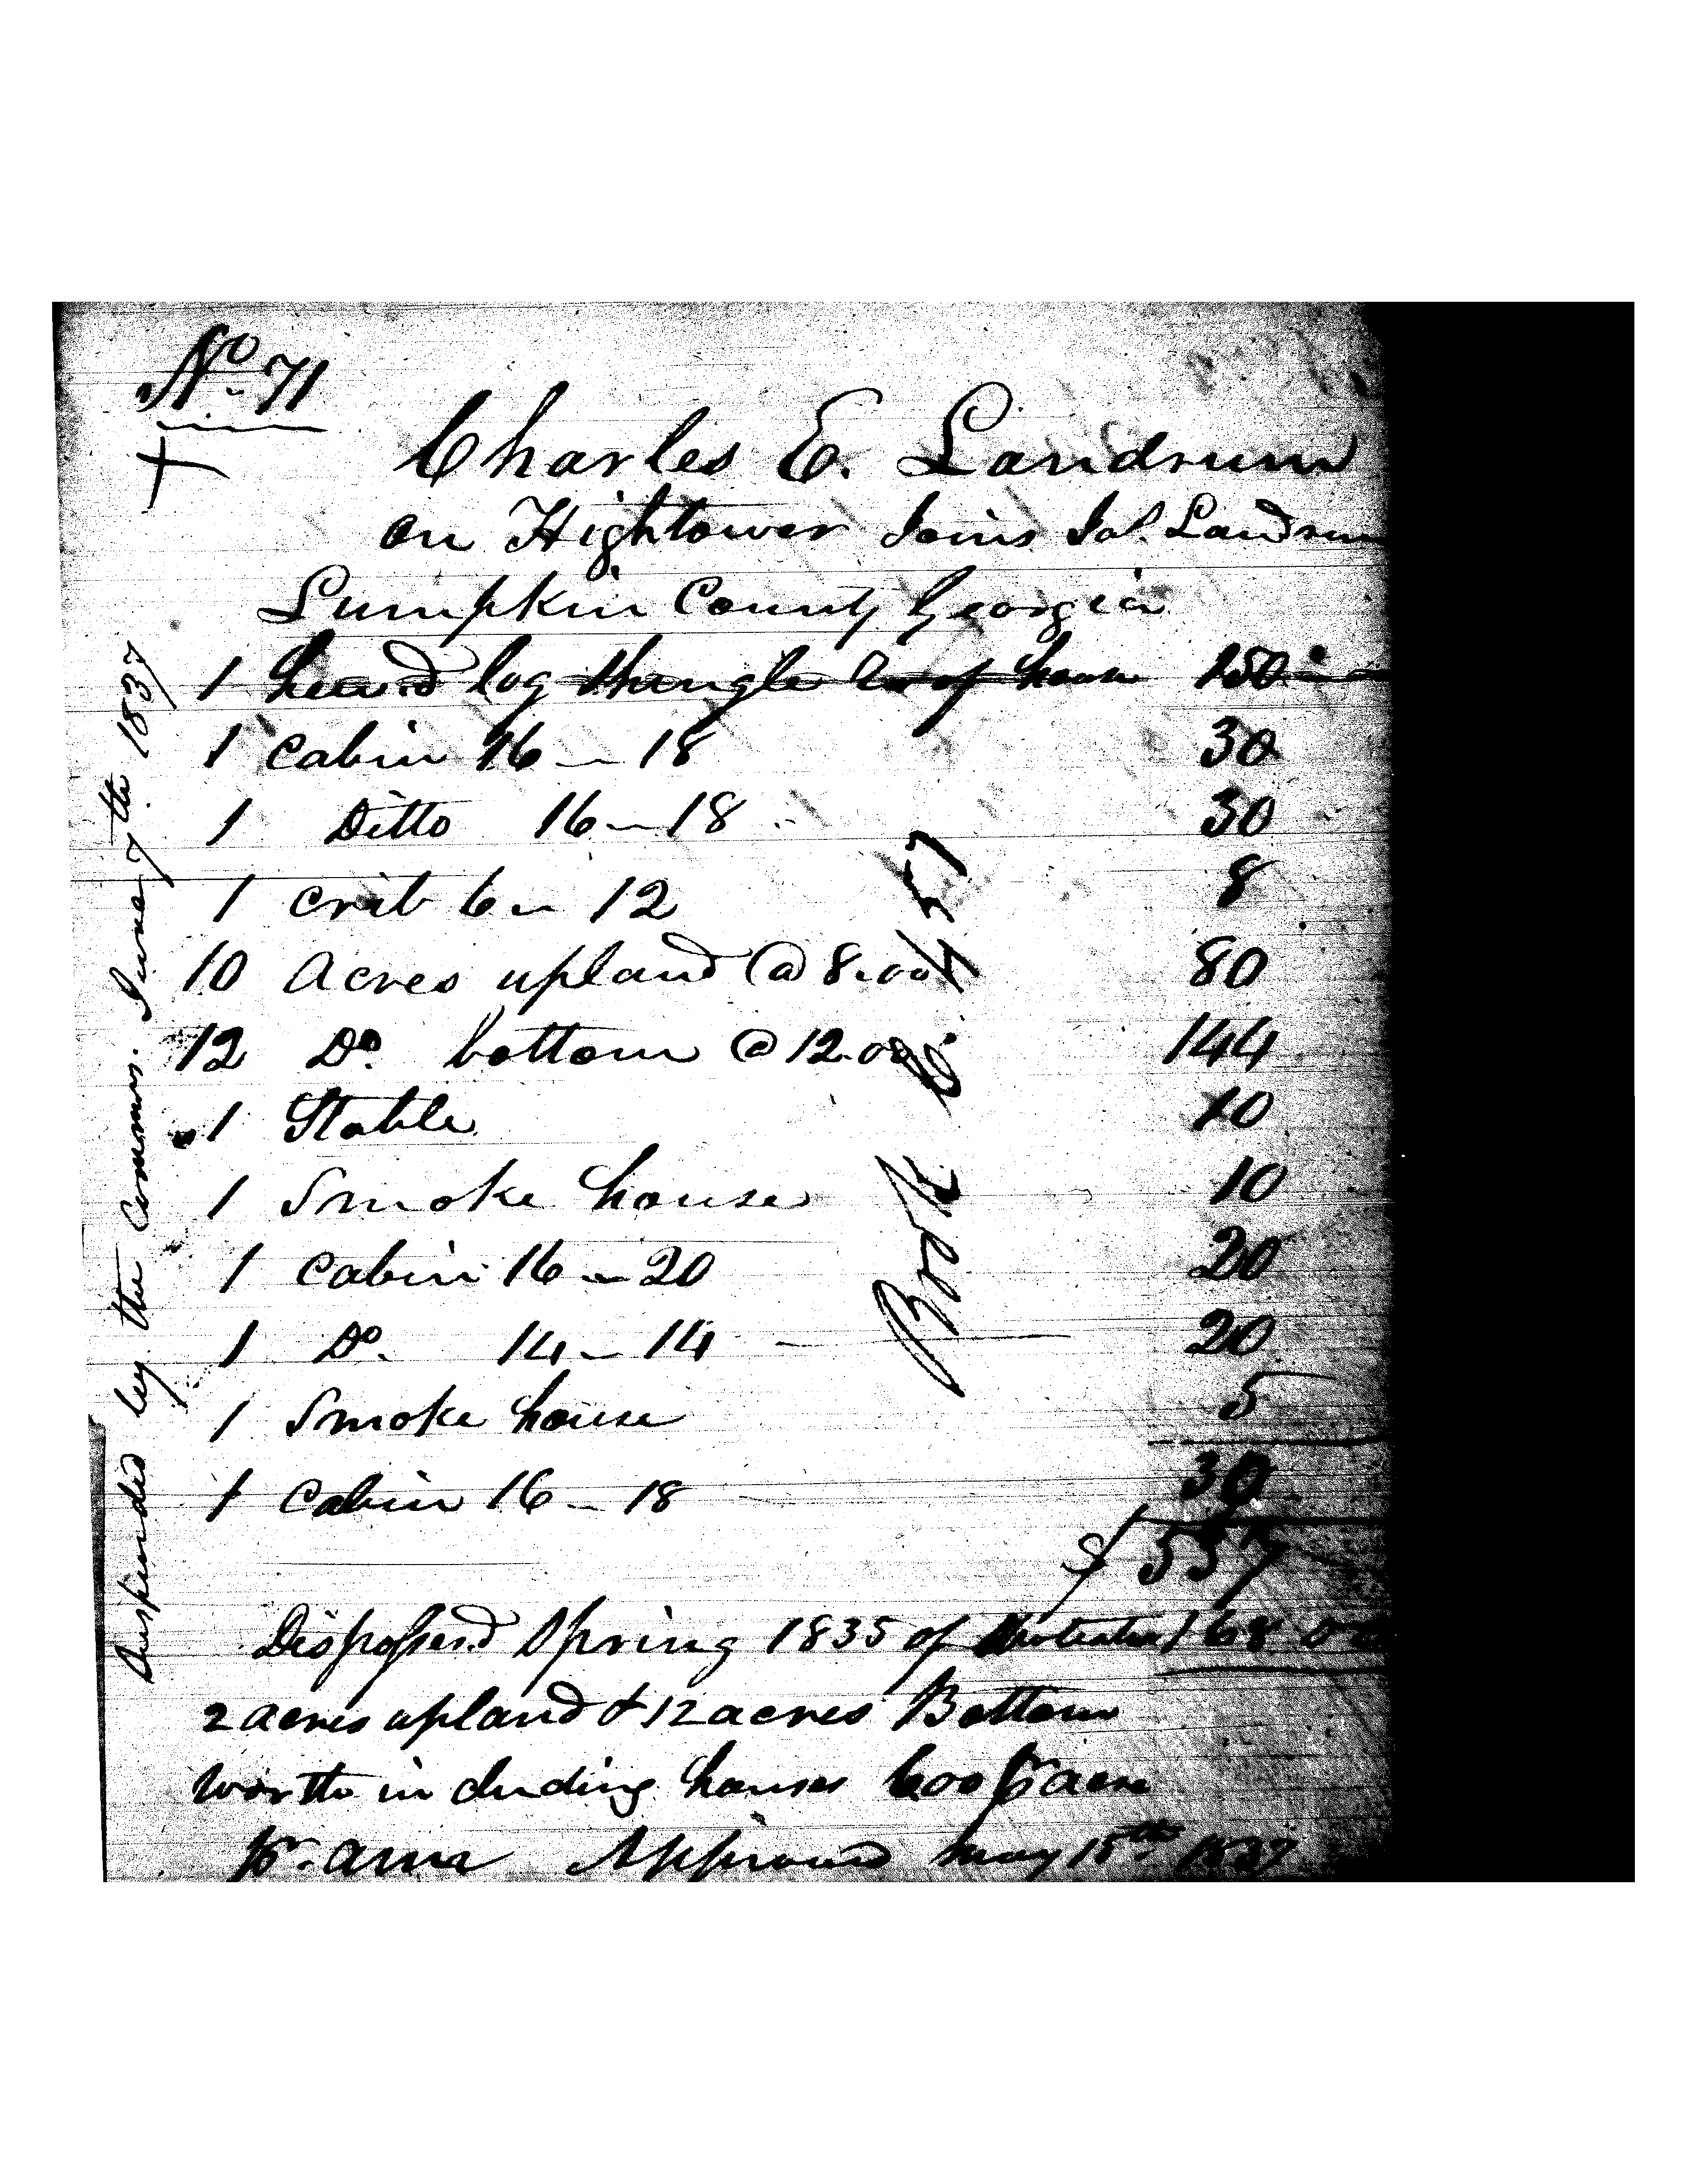 No. 71
Charles E. Landrum
on Hightower Joins Jas. Landrum
Lumpkin County Georgia
1 hewd log shingle roof house 150
1 Cabin 16 - 18 30
1 Ditto 16 - 18 30
1 Crib 6 - 12 8
10 Acres upland @ 8.00 80
12 Do. bottom @ 12.00 144
1 Stable 10
1 Smoke house 10
1 Cabin 16 - 20 20
1 Do. 14 - 14 20
1 Smoke house 5
1 Cabin 16 - 18 30
$ 537
Dispossesd Spring 1835 of 168
2 acres upland & 12 acres Bottom
worth including houses 600 pr acre
pr. Approved May 15th 1837
Suspended by the Comms. June 7th 1837
Book